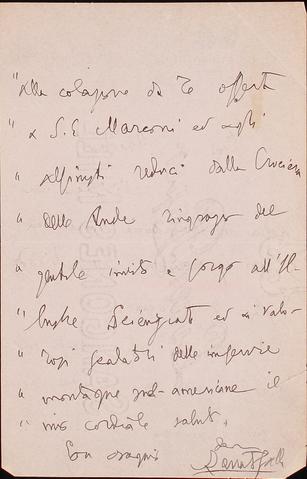 "Alla colazione da Te offerta
" a S.E. Marconi ed agli
" alpinisti reduci dalla Crociera
" delle Ande ringrazio del
" gentile invito e porgo all'Il-
" lustre Scienziato ed ai valo-
" rosi scalatori delle impervie
" montagne sud-americane il
" mio cordiale saluto.
Con ossequi